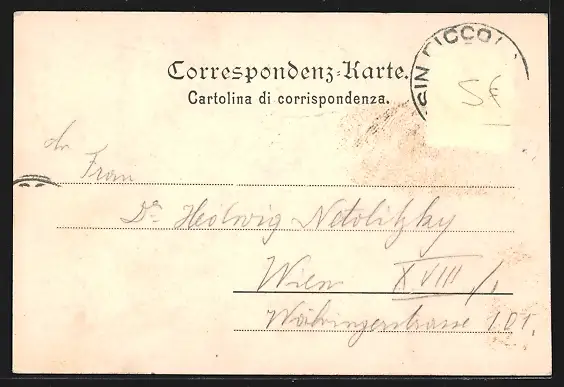 Correspondenz-Karte.
Cartolina di corrispondenza.
SIN PICCOL
5€
An
Frau
Dr Hedwig Netolitzky
Wien XVIII/1
Währingerstrasse 101.